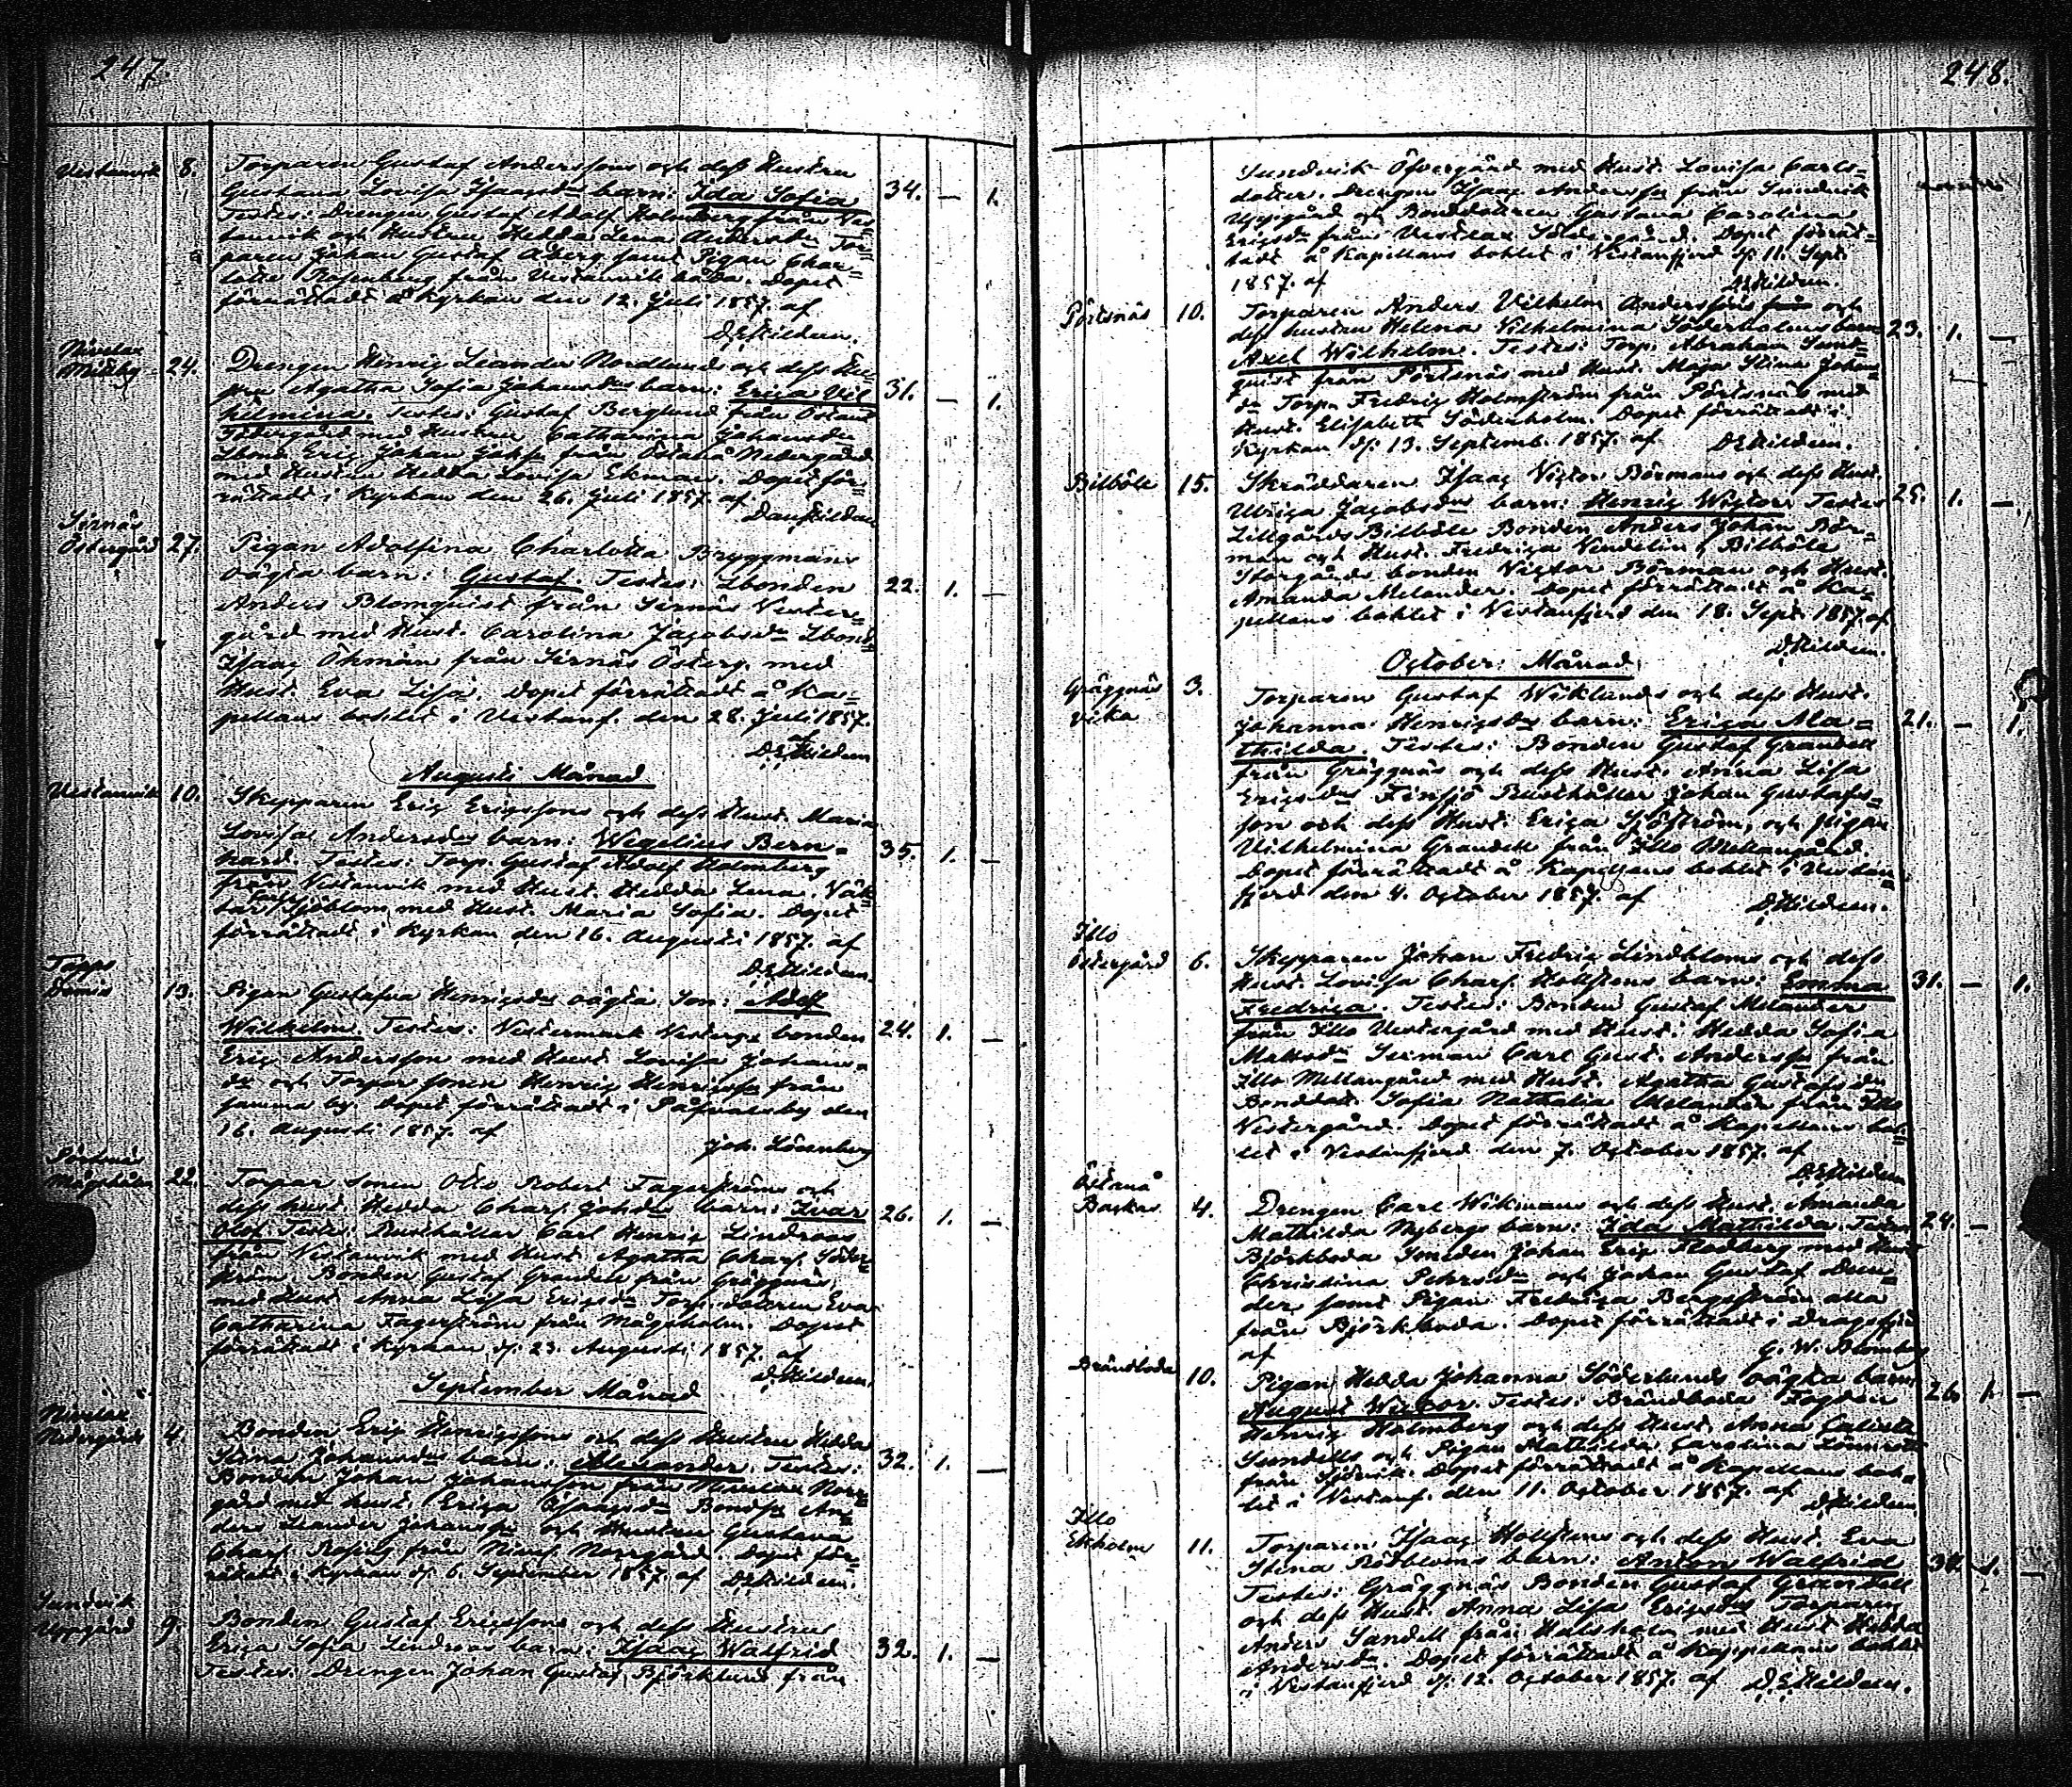 247.
Vestanvik 8. Torparen Gustaf Anderssons och dess Hustru
Gustava Lovisa Isaagsdrs barn: Ida Sofia 34. — 1.
Testes: Drengen Gustaf Adolf Holmberg från Ves=
tanvik och Hustru Hedda Lena Andersdr Tor=
paren Johan Gustaf Åberg samt Pigan Char=
lotte Rosenberg från Vestanvik båda. Dopet
förrättadt i Kyrkan den 12. Juli 1857. af
D.E. Hildeen.
Nivelax
24. Drengen Henrig Leander Nordlunds och dess Hu=
stru Agatha Sofia Johansdrs barn: Eriga Vil= 31. — 1.
helmina. Testes: Gustaf Berglund från Östanå
Södergård med Hustru Catharina Johansdr
Lbond Erig Johan Johss från Östanå Nedergård
med Hustru Hedda Lovisa Ekman. Dopet för=
rättadt i Kyrkan den 26. Juli 1857. af
Dan. Hildeen
Sirnäs
Östergård 27. Pigan Adolfina Charlotta Bryggmans
oägta barn: Gustaf. Testes: Lbonden 22. 1. —
Anders Blomquist från Sirnäs Vester=
gård med Hust. Carolina Jagobsdr Lbond
Isaag Öhman från Sirnäs Österg. med
Hust. Eva Lisa. Dopet förrättadt å Ka=
pellans bohlet i Vestanf. den 28. Juli 1857.
af
D.E. Hildeen
Augusti Månad
Vestanvik 10. Skepparen Erig Erigssons och dess Hust. Maria
Lovisa Andersdrs barn: Wegelius Bern= 35. 1. —
hard. Testes: Torp. Gustaf Adolf Holmberg
från Vestanvik med Hust. Hedda Lena. Väk=
tar Sjöblom med Hust. Maria Sofia. Dopet
förrättadt i Kyrkan den 16. Augusti 1857. af
D.E. Hildeen.
13. Pigan Gustafva Henrigsdrs oägta Son: Adolf
Wilhelm. Testes: Vestermark Vesterg. bonden 24. 1. —
Erig Andersson med Hust. Lovisa Johans=
dr och Torpar sonen Henrig Henrigss från
samma by. Dopet förrättadt i Påfvalsby den
16. Augusti 1857. af
Joh. Lönnberg
22. Torpar Sonen Otto Robert Fagerströms och
dess hust. Hedda Charl. Johsdrs barn: Ivar 26. 1. —
Olof Testes: Rusthållar Carl Henrig Lindroos
från Vestanvik med Hust. Agatha Charl. Söder=
ström. Bonden Gustaf Grandell från Gräggnäs
med Hust. Anna Lisa Erigsdr Torp. dotren Eva
Catharina Fagerström från Mågsholm. Dopet
förrättadt i Kyrkan d. 23. Augusti 1857. af
D. Hildeen.
September Månad
Nivelax
Nedergård 4. Bonden Erig Henrigssons och dess Hustru Hedda
Stina Johansdrs barn: Alexander. Testes: 32. 1. —
Bonden Johan Johansson från Nivelax Norr=
gård med hust. Eriga Isaagsdr Bondss An=
ders Leander Johanss och Hustru Gustava
Charl. från Nivel. Norrgård. Dopet för=
rättadt i Kyrkan d. 6. September 1857. af D.E. Hildeen.
Sundvik
Uppgård 9. Bonden Gustaf Ericssons och dess Hustrus
Eriga Sofia Lindroos barn: Isaag Walfrid 32. 1. —
Testes: Drengen Johan Gustaf Björklund från
248.
Sundvik Öfvergård med Hust. Lovisa Carls=
dotter. Drengen Isaag Anderss från Sundvik
Uppgård och Bonddottren Gustava Carolina
Erigsdr från Vestlax Södergård. Dopet förrät=
tadt å Kapellans bohlet i Vestanfjerd d. 11. Sept.
1857. af D.E. Hildeen.
Pörtsnäs 10. Torparen Anders Vilhelm Anderssons och
dess hustru Helena Vilhelmina Söderholms barn 23. 1. —
Axel Wilhelm. Testes: Torp. Abraham Sund=
quist från Pörtsnäs med Hust. Maja Stina Johan=
dr Torp. Fredrig Holmström från Pörtsnäs med
Hust. Elisabeth Söderholm. Dopet förrättadt i
Kyrkan d. 13. Septemb. 1857. af D.E. Hildeen.
Bilböle 15. Skräddaren Isaag Vigtor Börmans och dess Hust.
Ulriga Jagobsdrs barn: Henrig Wigtor Testes 25. 1. —
Lillgårds Bilböle Bonden Anders Johan Bör=
man och Hust. Fredriga Vendelin, Bilböle
Storgårds bonden Vigtor Börman och Hust.
Amanda Melander. Dopet förrättadt å Ka=
pellans bohlet i Vestanfjerd den 18. Sept. 1857. af
D. Hildeen.
October Månad
Gräggnäs
vika 3. Torparen Gustaf Wiklunds och dess Hust.
Johanna Henrigsdrs barn: Eriga Ma= 21. — 1.
thilda. Testes: Bonden Gustaf Grandell
från Gräggnäs och dess Hust. Anna Lisa
Erigsdr Finsjö Rusthållar Johan Gustafs=
son och dess Hust. Eriga Sjöström, och Pigan
Vilhelmina Grandell från Illo Mellangård.
Dopet förrättadt å Kapellans bohlet i Vestan=
fjerd den 4. October 1857. af D. Hildeen.
Illo
Östergård 6. Skepparen Johan Fredrig Lindbloms och dess
Hust. Lovisa Charl. Hollstens barn: Emma 31. — 1.
Fredriga. Testes: Bonden Gustaf Melander
från Illo Vestergård med Hust. Hedda Sofia
Mattsdr Sjeman Carl Gust. Anderss från
Illo Mellangård med Hust. Agatha Gustafsdr
Bonddot. Sofia Nathalia Melander från Illo
Vestergård. Dopet förrättadt å Kapellans boh=
let i Vestanfjerd den 7. October 1857. af
D.E. Hildeen
Östanå
Backas 4. Drengen Carl Wikmans och dess Hust. Amanda
Mathilda Nybergs barn: Ida Mathilda. Testes 24. —
Björkboda Smeden Johan Erig Flodberg med Hust.
Christina Pehrsdr och Johan Gustaf
samt Pigan Fredriga Bergström alla
från Björkboda. Dopet förrättadt i Dragsfjerd
af G. W. Blomberg
Brändboda 10. Pigan Hedda Johanna Söderlunds oägta barn
August Wictor. Testes: Brändboda Fogden 26. 1. —
Henrig Holmberg och dess Hust. Anna
Sundell och Pigan Mathilda Carolina Lönnroth
från Sjövik. Dopet förrättadt å Kapellans boh=
let i Vestanf. den 11. October 1857. af D. Hildeen
Illo
Ekholm 11. Torparen Isaag Hollstens och dess Hust. Eva
Stina Rotbloms barn: Anton Walfrid 34. 1. —
Testes: Gräggnäs Bonden Gustaf Grandell
och dess Hust. Anna Lisa Erigsdr Torparen
Anders Sandell från Halsholm med Hust Hedda
Andersdr. Dopet förrättadt å Kapellans bohlet
i Vestanfjerd d. 12. October 1857. af D.E. Hildeen.